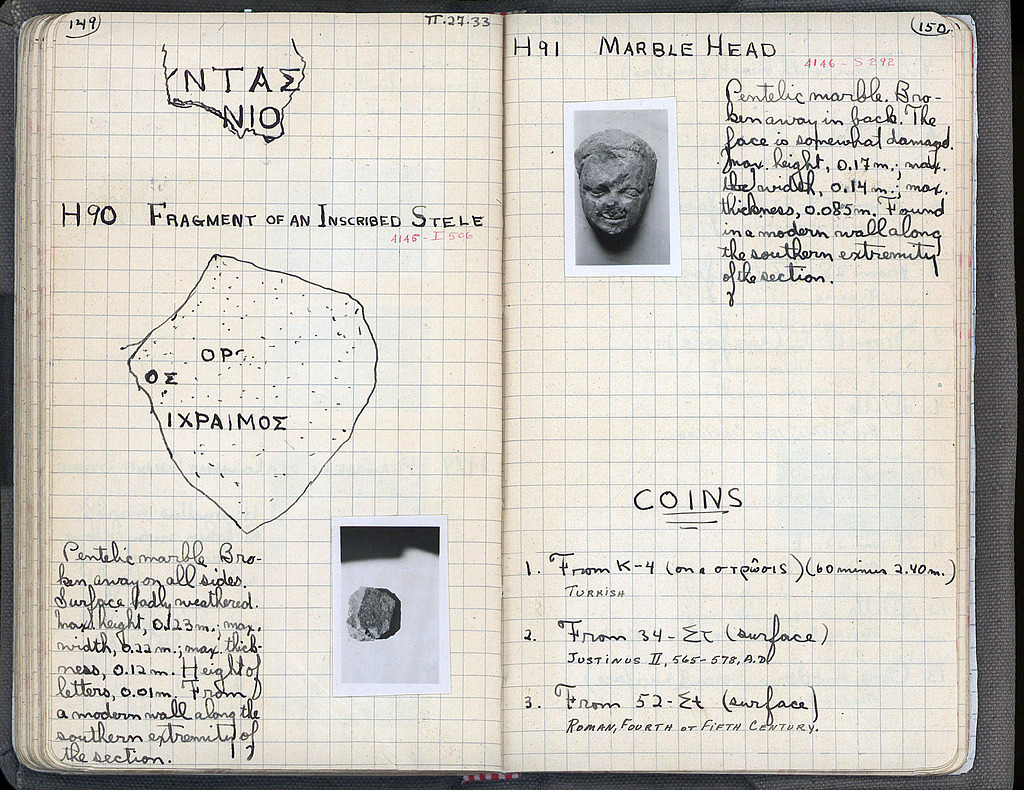 149
II-27-33
ΥΝΤΑΣ
ΝΙΟ
H90 FRAGMENT OF AN INSCRIBED STELE
4145 - I 506
ΟΡ
ΟΣ
ΙΧΡΑΙΜΟΣ
Pentelic marble. Bro-
ken away on all sides.
Surface badly weathered.
Max. height, 0.23 m.; max.
width, 0.22 m.; max. thick-
ness, 0.12 m. Height of
letters, 0.01 m. From
a modern wall along the
southern extremity of
the section.
150
H91 MARBLE HEAD
4146 - S 292
Pentelic marble. Bro-
ken away in back. The
face is somewhat damaged.
Max. height, 0.17 m.; max.
width, 0.14 m.; max.
thickness, 0.085 m. Found
in a modern wall along
the southern extremity
of the section.
COINS
1. From K-4 (on a στρῶσις) (60 minus 2.40 m.)
TURKISH
2. From 34-Στ (surface)
JUSTINUS II, 565-578, A.D.
3. From 52-Στ (surface)
ROMAN, FOURTH OR FIFTH CENTURY.